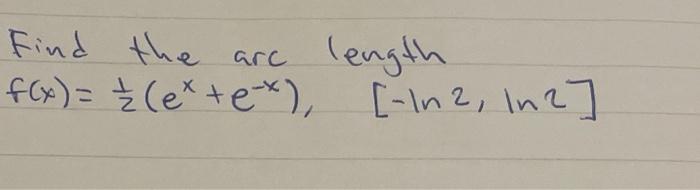 Find the arc length
f(x) = ½(eˣ + e⁻ˣ), [-ln 2, ln 2]